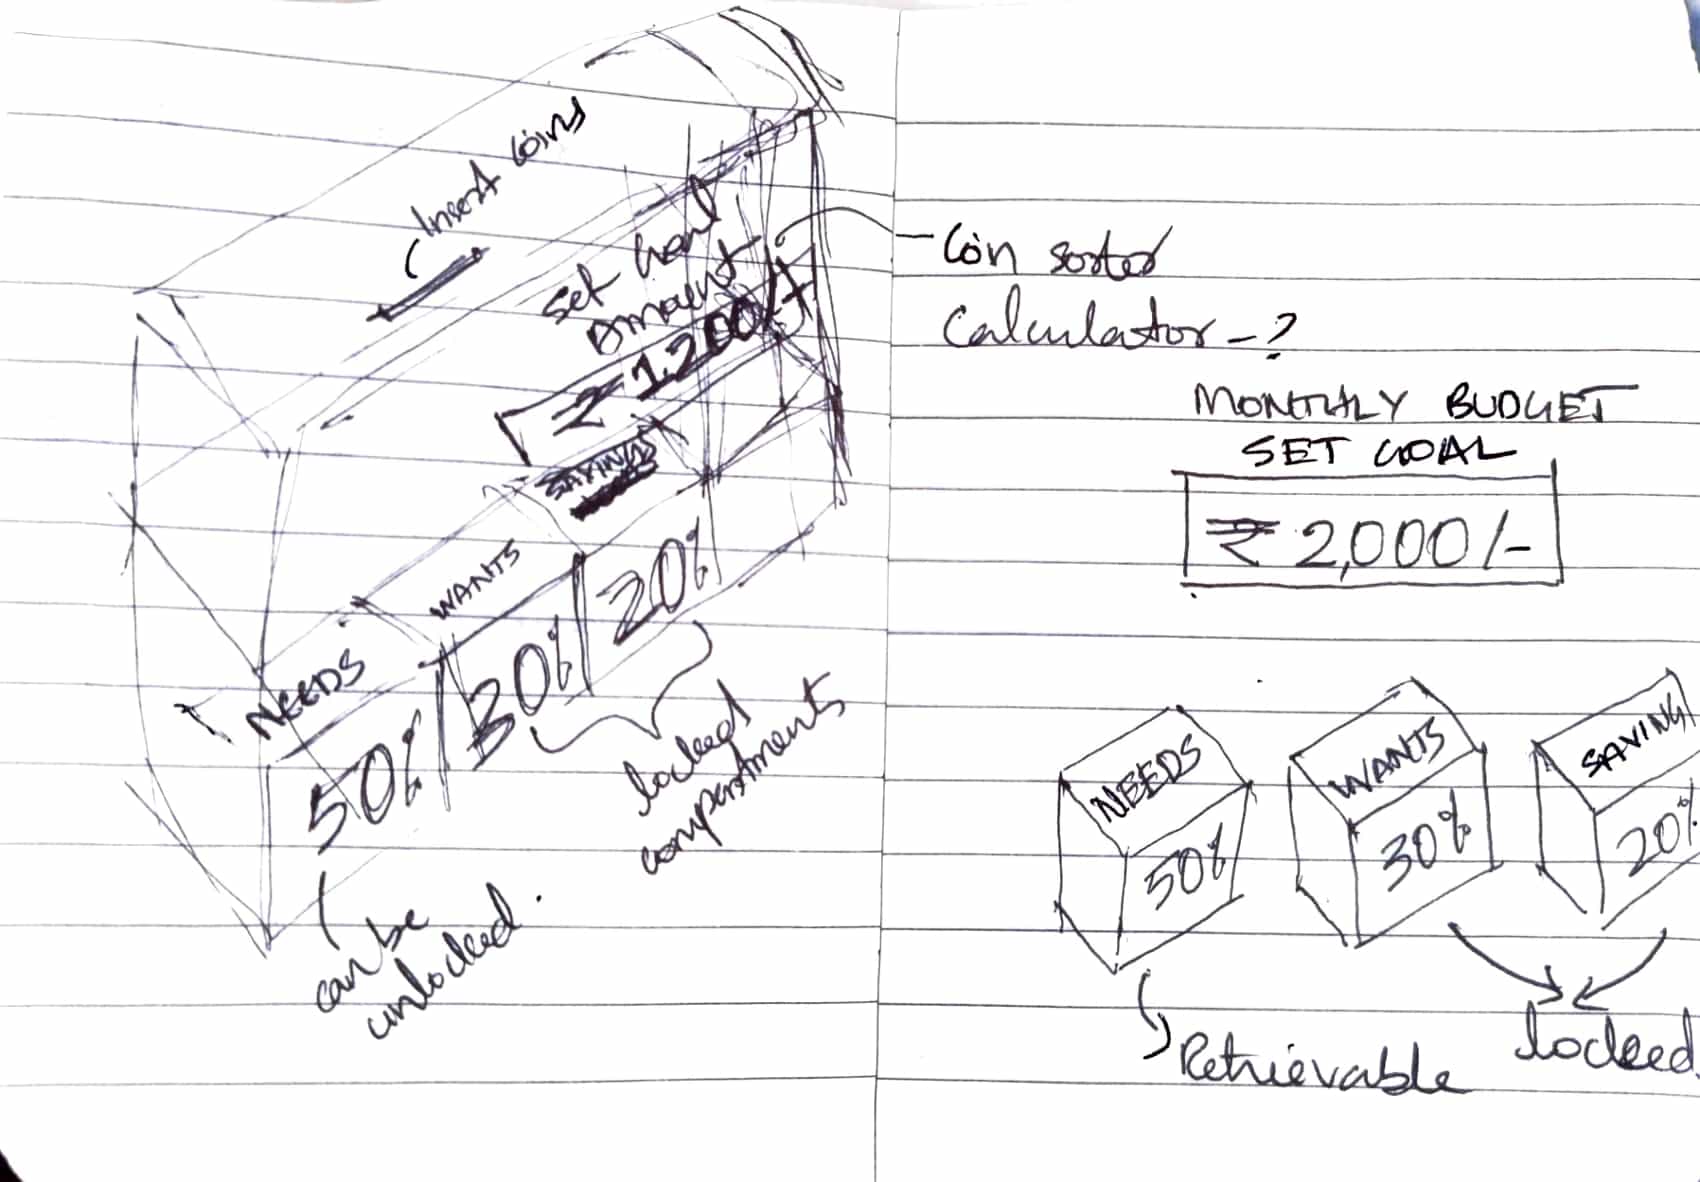 Insert Coins
Set Goal
Amount
₹ 1,200/-
SAVINGS
WANTS
NEEDS
50%
30%
20%
locked
compartments
can be
unlocked.
Coin sorter
Calculator - ?
MONTHLY BUDGET
SET GOAL
₹ 2,000/-
NEEDS
50%
WANTS
30%
SAVING
20%
Retrievable
locked.